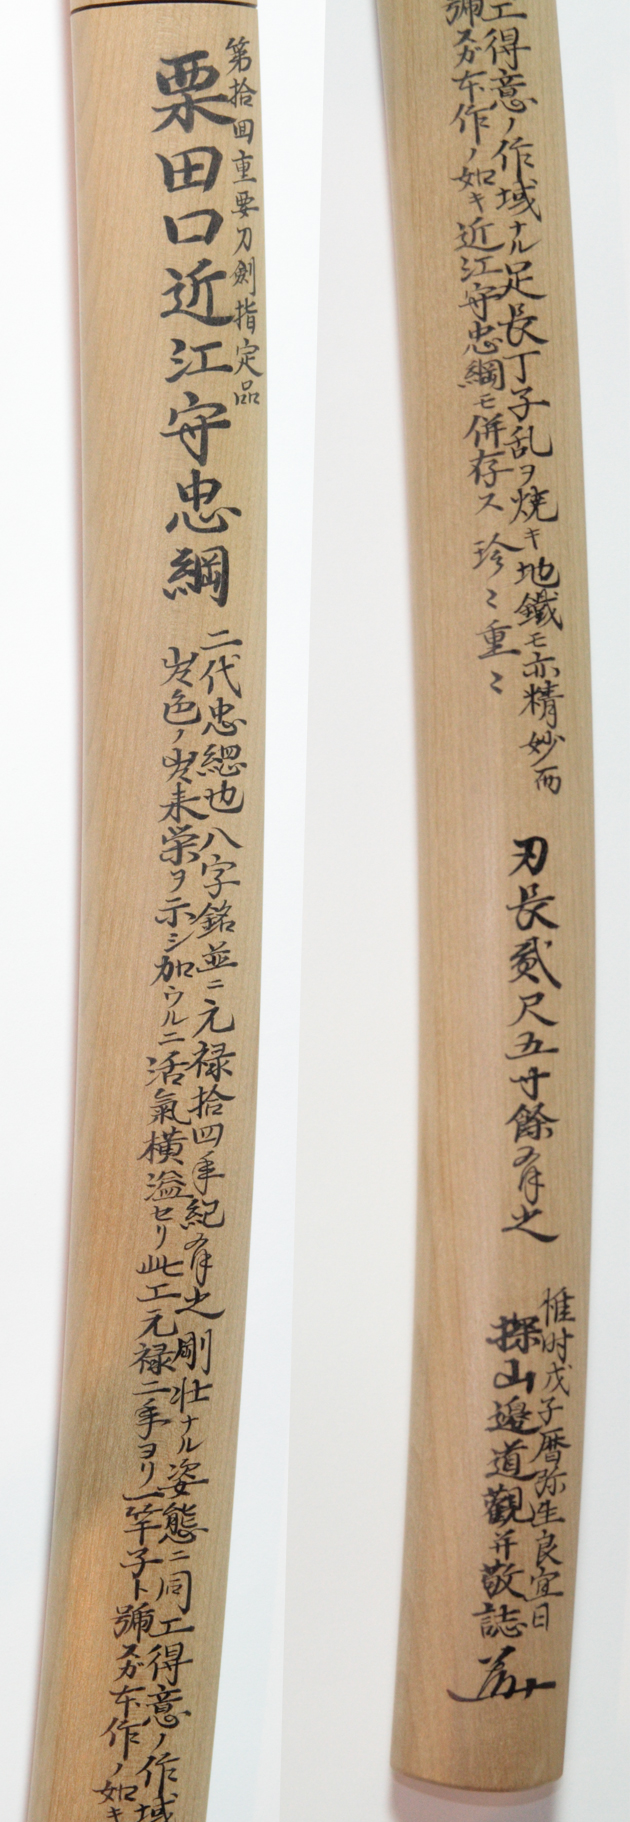 第拾回重要刀剣指定品
粟田口近江守忠綱
二代忠綱也八字銘並ニ元禄拾四年紀有之剛壮ナル姿態ニ同工得意ノ作域
出色ノ出来栄ヲ示シ加ウルニ活氣横溢セリ此工元禄二年ヨリ一竿子ト號スガ本作ノ如キ
工得意ノ作域ナル足長丁子乱ヲ焼キ地鐵モ亦精妙而
號スガ本作ノ如キ近江守忠綱モ併存ス珍〻重〻
刃長貳尺五寸餘有之
惟时戊子暦弥生良宜日
探山邉道觀并敬誌